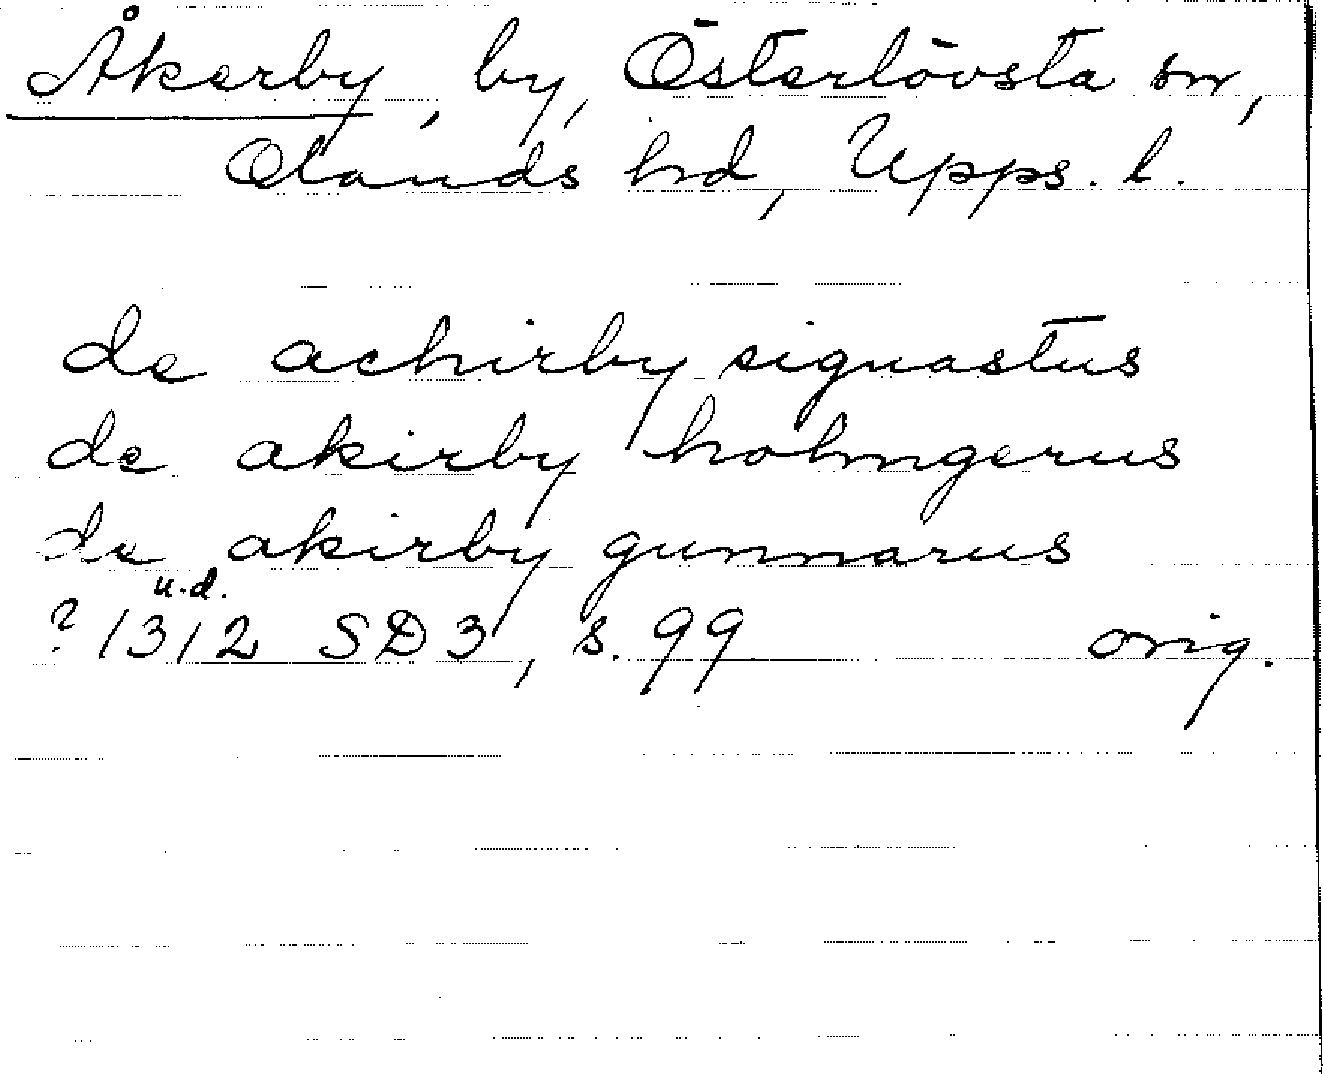 Åkerby, by, Österlövsta sn,
Olands hd, Upps. l.
de achirby signastus
de akirby holmgerus
de akirby gunnarus
u.d.
? 1312 SD3, s. 99 orig.